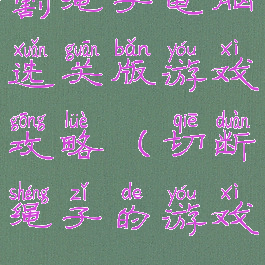 割绳子电脑
xuǎn guān bǎn yóu xì
选关版游戏
gōng lüè qiē duàn
攻略（切断
shéng zǐ de yóu xì
绳子的游戏